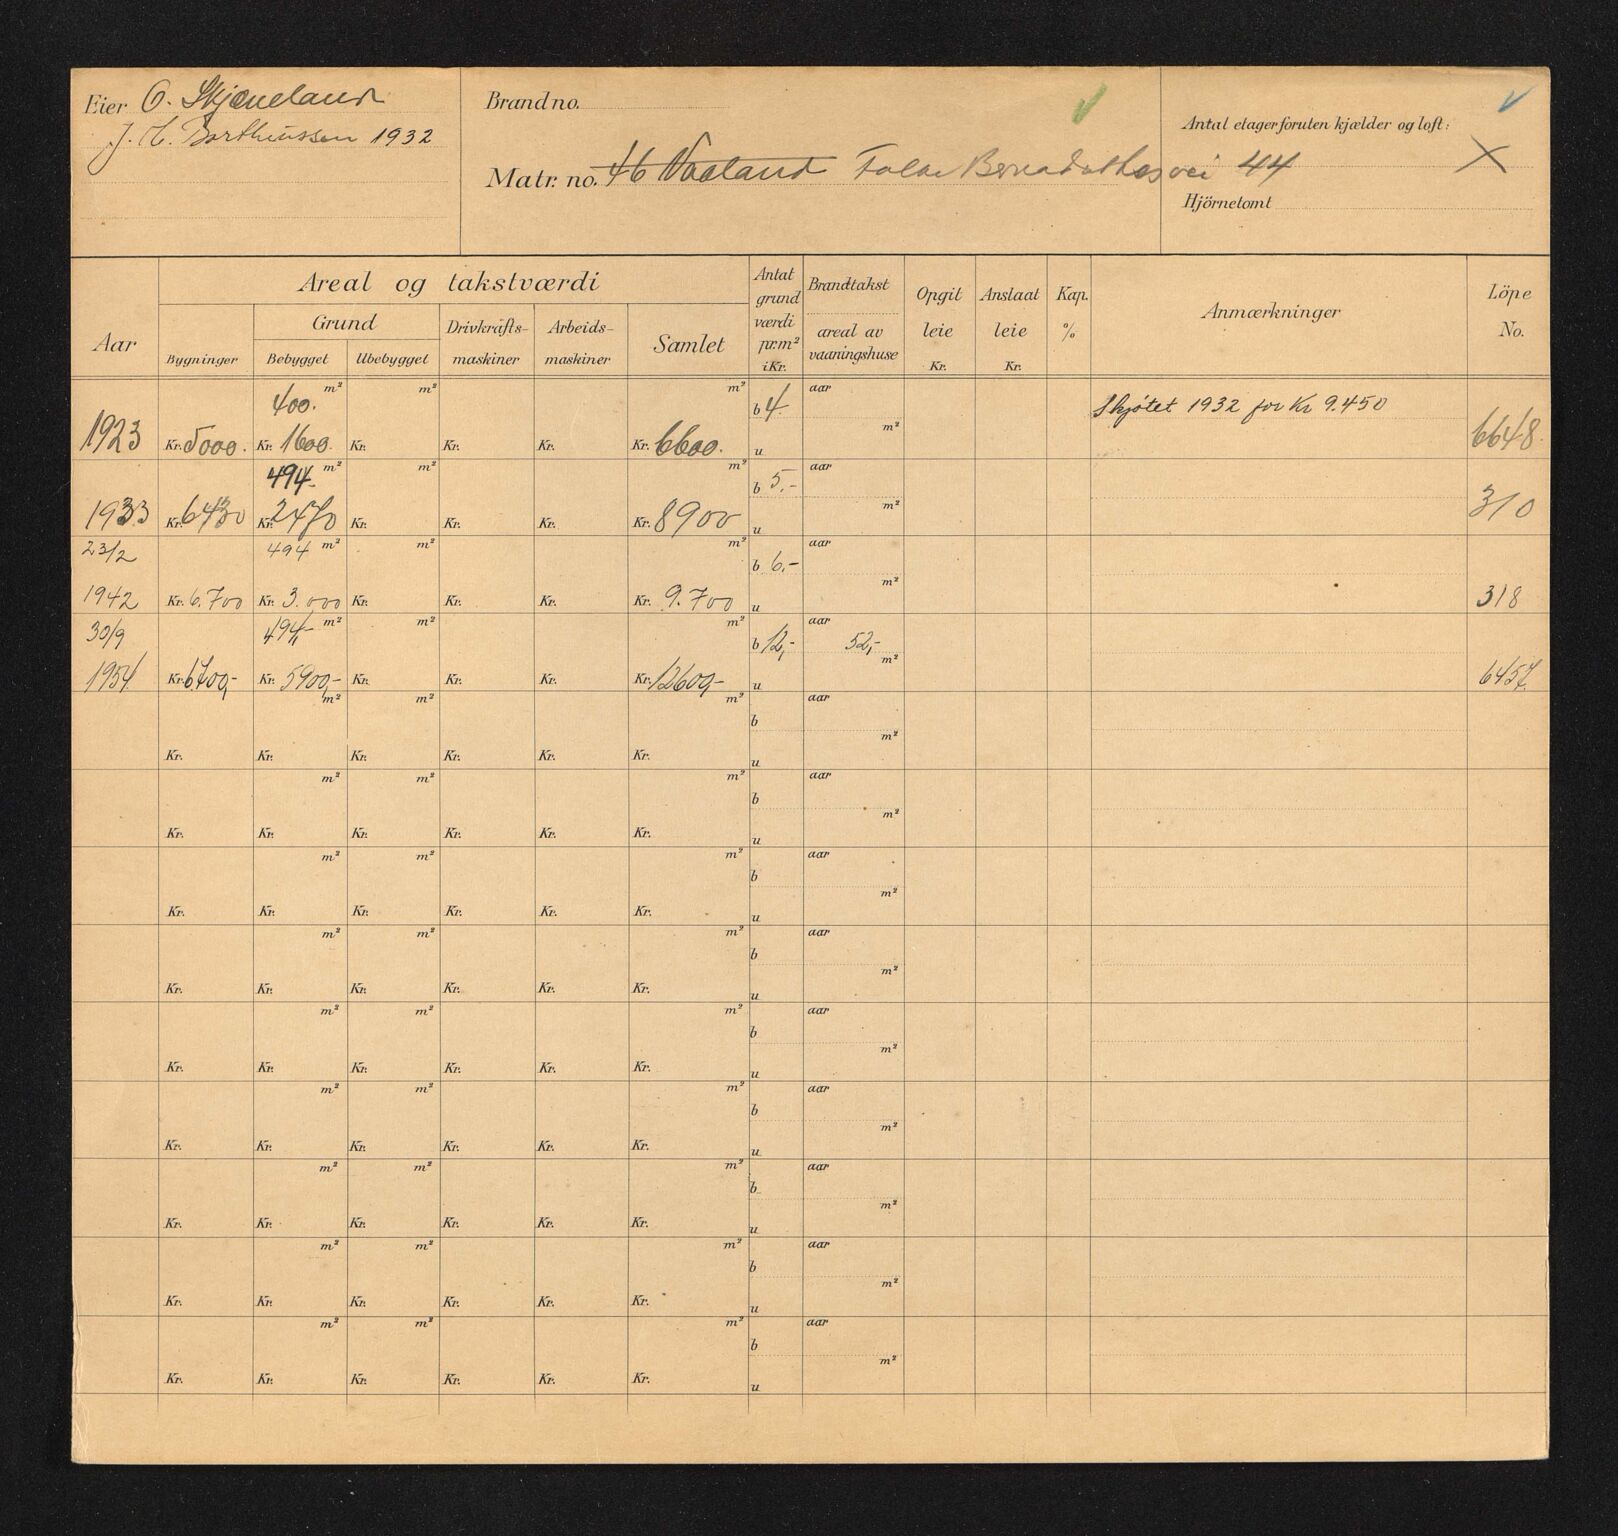 Eier O. Skjæveland
J. M. Barthinussen 1932
Brand no.
Matr. no. 46 Vaaland Folke Bernadottesvei 44
Antal etager foruten kjælder og loft: X
Hjörnetomt
Aar
Areal og takstværdi
Bygninger
Grund
Bebygget Ubebygget
Drivkrafts-maskiner
Arbeids-maskiner
Samlet
Antat grund værdi pr. m² i Kr.
Brandtakst
areal av vaaningshuse
Opgit leie Kr.
Anslaat leie Kr.
Kap. %
Anmærkninger
Löpe No.
400. m² m² m² b 4 aar Skjøtet 1932 for Kr 9.450
1923 Kr. 5000. Kr. 1600. Kr. Kr. Kr. Kr. 6600. u m² 6648.
494- m² m² m² b 5.- aar
1933 Kr. 6430 Kr. 2470 Kr. Kr. Kr. Kr. 8900 u m² 310
23/2 494 m² m² m² b 6.- aar
1942 Kr. 6.700 Kr. 3.000 Kr. Kr. Kr. Kr. 9.700 u m² 318
30/9 494,- m² m² m² b 12,- aar 52,- m²
1954. Kr. 6700,- Kr. 5900,- Kr. Kr. Kr. Kr. 12600,- u 6457.
m² m² m² b aar
Kr. Kr. Kr. Kr. Kr. Kr. u m²
m² m² m² b aar
Kr. Kr. Kr. Kr. Kr. Kr. u m²
m² m² m² b aar
Kr. Kr. Kr. Kr. Kr. Kr. u m²
m² m² m² b aar
Kr. Kr. Kr. Kr. Kr. Kr. u m²
m² m² m² b aar
Kr. Kr. Kr. Kr. Kr. Kr. u m²
m² m² m² b aar
Kr. Kr. Kr. Kr. Kr. Kr. u m²
m² m² m² b aar
Kr. Kr. Kr. Kr. Kr. Kr. u m²
m² m² m² b aar
Kr. Kr. Kr. Kr. Kr. Kr. u m²
m² m² m² b aar
Kr. Kr. Kr. Kr. Kr. Kr. u m²